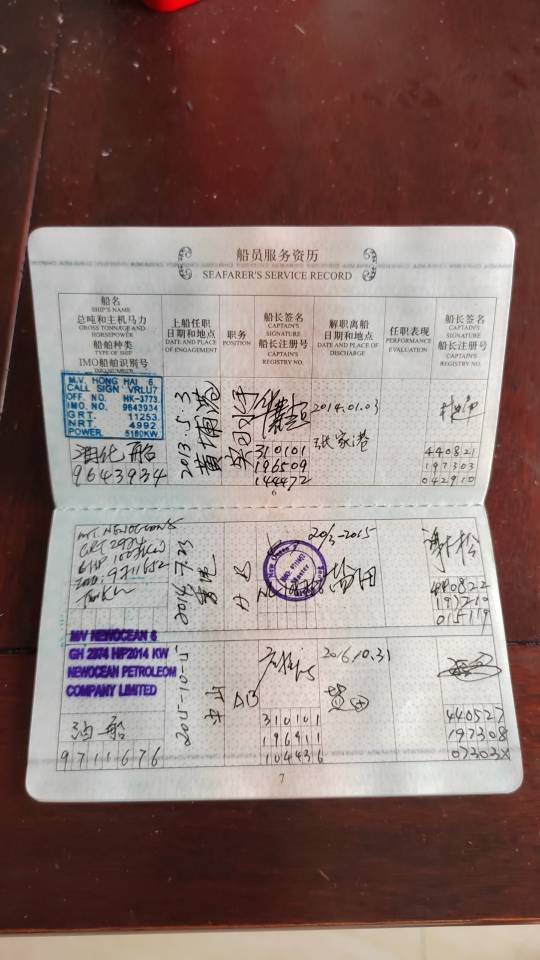 船员服务资历
SEAFARER'S SERVICE RECORD
船名
SHIP'S NAME
总吨和主机马力
GROSS TONNAGE AND
HORSEPOWER
船舶种类
TYPE OF SHIP
IMO船舶识别号
IMO NUMBER
上船任职
日期和地点
DATE AND PLACE
OF ENGAGEMENT
职务
POSITION
船长签名
CAPTAIN'S
SIGNATURE
船长注册号
CAPTAIN'S
REGISTRY NO.
解职离船
日期和地点
DATE AND PLACE OF
DISCHARGE
任职表现
PERFORMANCE
EVALUATION
船长签名
CAPTAIN'S
SIGNATURE
船长注册号
CAPTAIN'S
REGISTRY NO.
M.V. HONG HAI 6
CALL SIGN VRLU7
OFF. NO. HK-3773
IMO. NO. 9643934
GRT. 11253
NRT. 4992
POWER. 5180KW
油化船
9643934
2013.5.3
黄埔港
实习水手
310101
196509
144472
2014.01.03
张家港
440821
197303
042910
6
MT. NEWOCEAN5
GRT 2974
2014.7.23
AB
New Ocean 5
Master
20/3-2015
盐田
谢松
440822
015119
M/V NEWOCEAN 6
GH 2974 H/P2014 KW
NEWOCEAN PETROLEOM
COMPANY LIMITED
油船
9711676
2015-10-5
AB
310101
196911
104436
2016.10.31
440527
197308
07303X
7